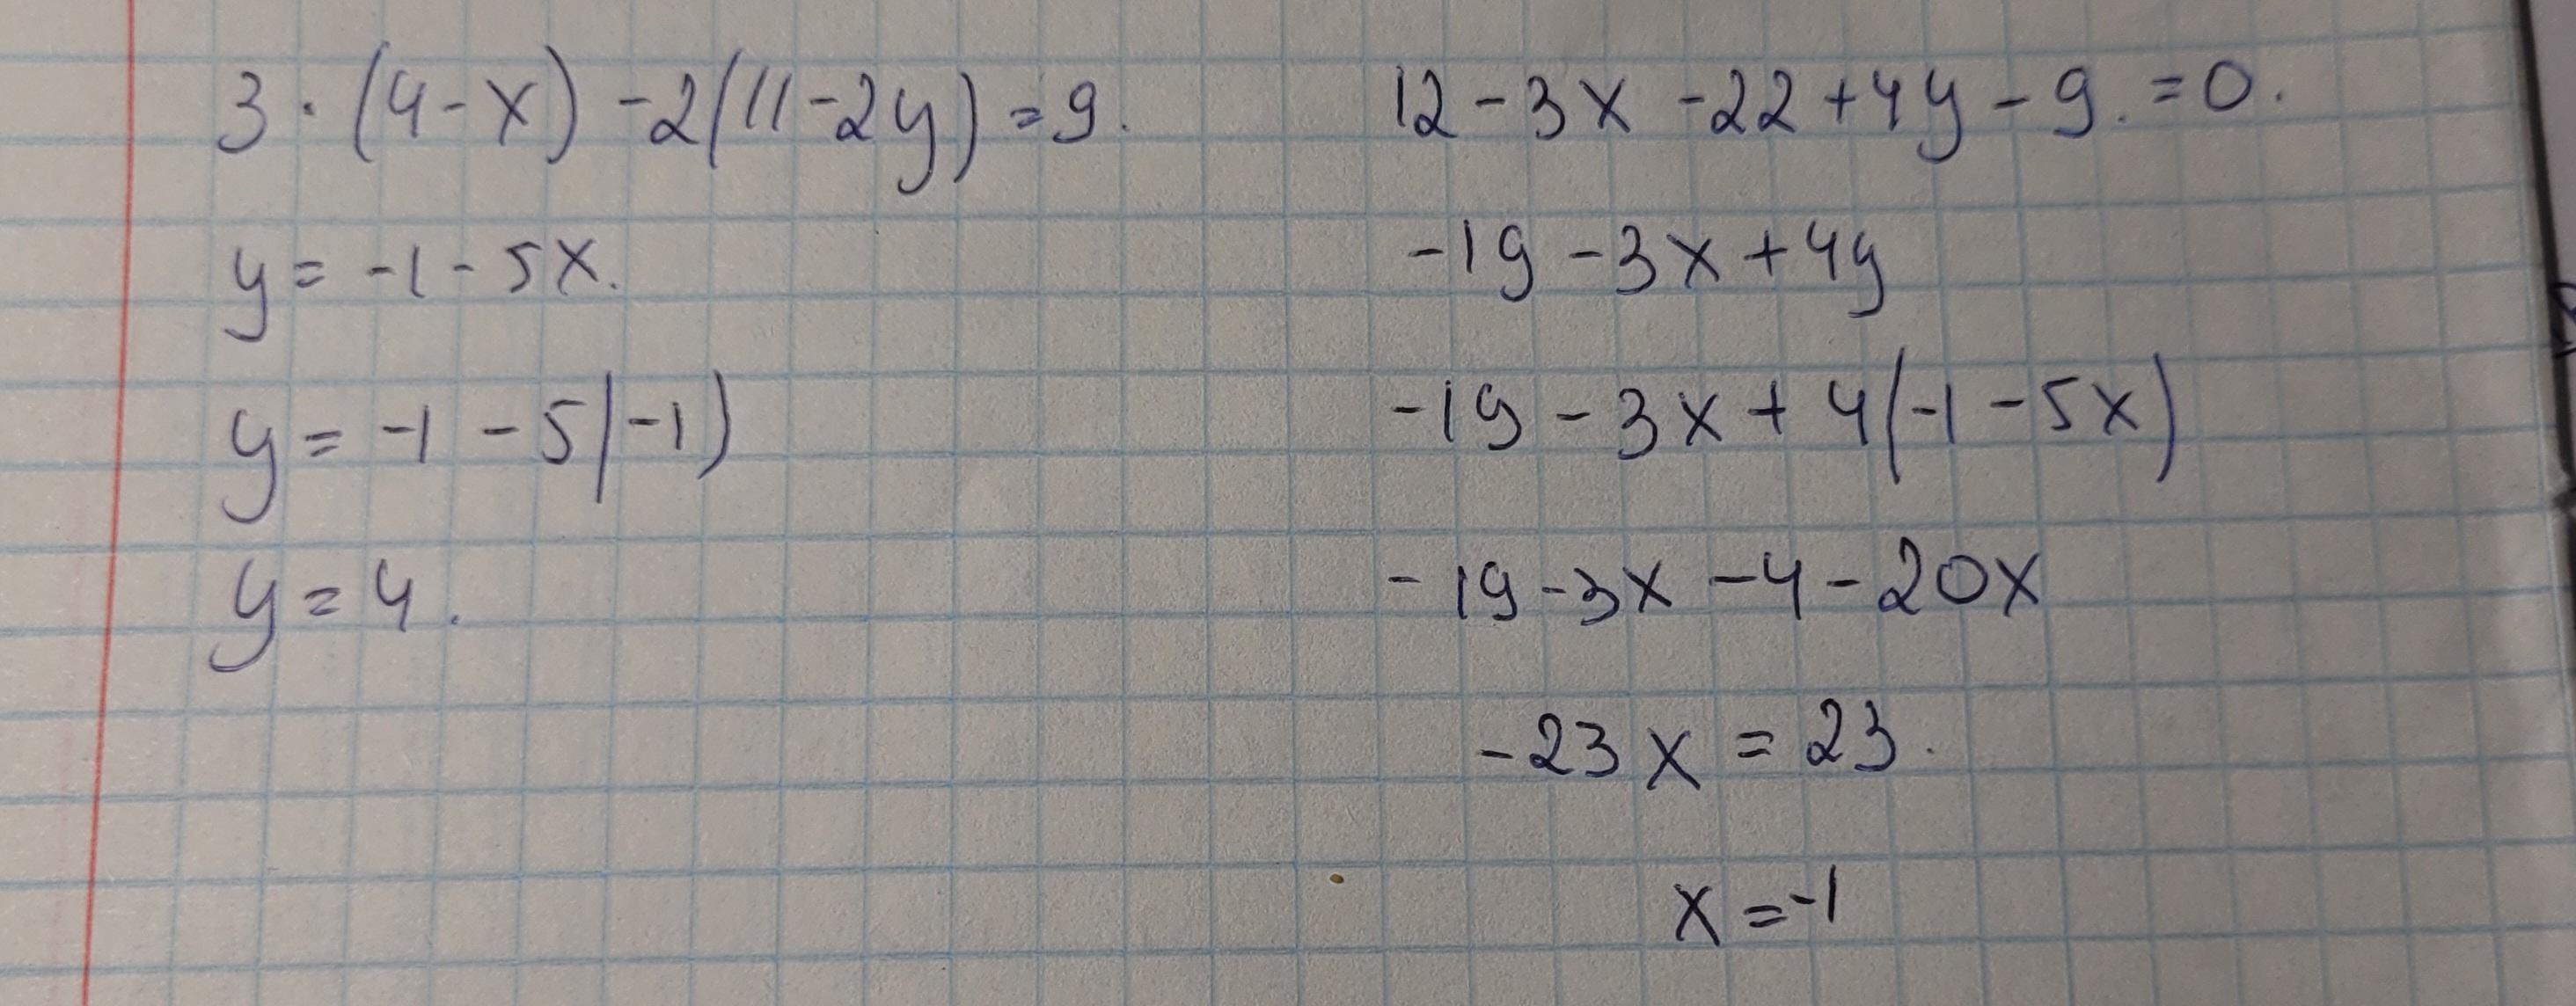 3 · (4 - x) - 2(11 - 2y) = 9.
y = -1 - 5x.
y = -1 - 5(-1)
y = 4.
12 - 3x - 22 + 4y - 9. = 0.
-19 - 3x + 4y
-19 - 3x + 4(-1 - 5x)
-19 - 3x - 4 - 20x
-23x = 23.
x = -1